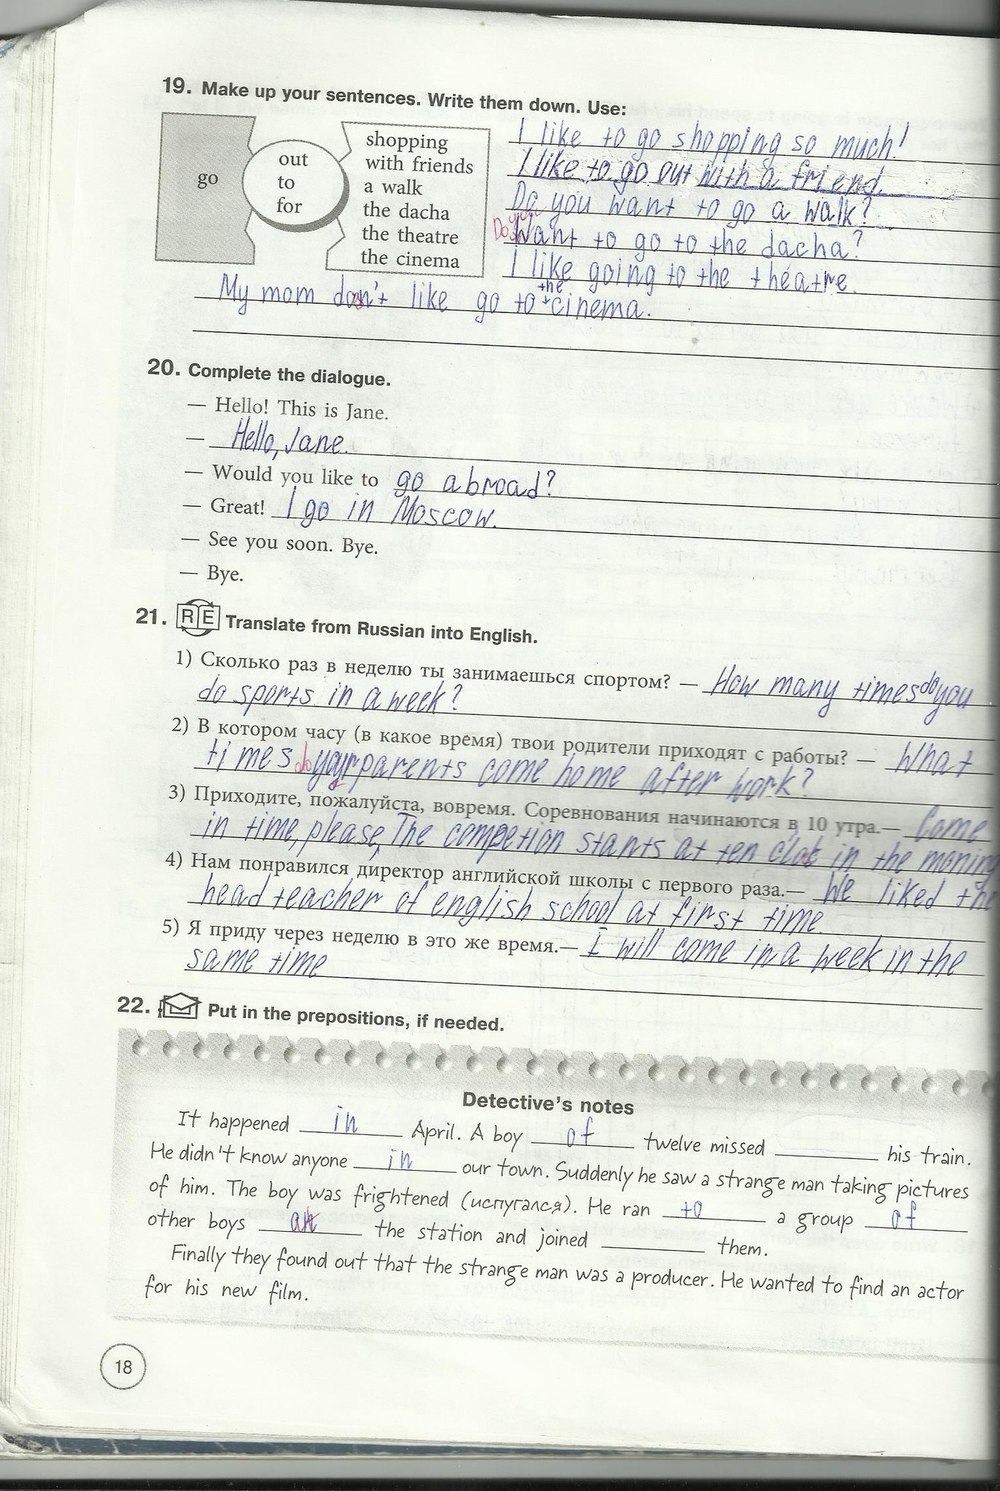 19. Make up your sentences. Write them down. Use:
go
out
to
for
shopping
with friends
a walk
the dacha
the theatre
the cinema
I like to go shopping so much!
I like to go out with a friend.
Do you want to go a walk?
Do you want to go to the dacha?
I like going to the theatre.
My mom don't like go to the cinema.
20. Complete the dialogue.
— Hello! This is Jane.
— Hello, Jane.
— Would you like to go abroad?
— Great! I go in Moscow.
— See you soon. Bye.
— Bye.
21. RE Translate from Russian into English.
1) Сколько раз в неделю ты занимаешься спортом? — How many times do you
do sports in a week?
2) В котором часу (в какое время) твои родители приходят с работы? — What
times do your parents come home after work?
3) Приходите, пожалуйста, вовремя. Соревнования начинаются в 10 утра.— Come
in time, please, The competion starts at ten in the
4) Нам понравился директор английской школы с первого раза.— We liked the
head teacher of english school at first time
5) Я приду через неделю в это же время.— I will come in a week in the
same time
22. Put in the prepositions, if needed.
Detective's notes
It happened in April. A boy of twelve missed his train.
He didn't know anyone in our town. Suddenly he saw a strange man taking pictures
of him. The boy was frightened (испугался). He ran to a group of
other boys the station and joined them.
Finally they found out that the strange man was a producer. He wanted to find an actor
for his new film.
18